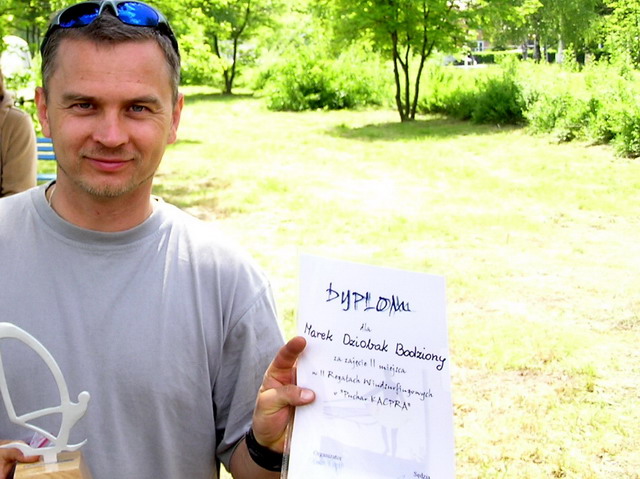 DYPLOM
dla
Marek Dziobak Bodziony
za zajęcie II miejsca
w II Regatach Windsurfingowych
o "Puchar KACPRA"
Organizatorzy
Sędzia